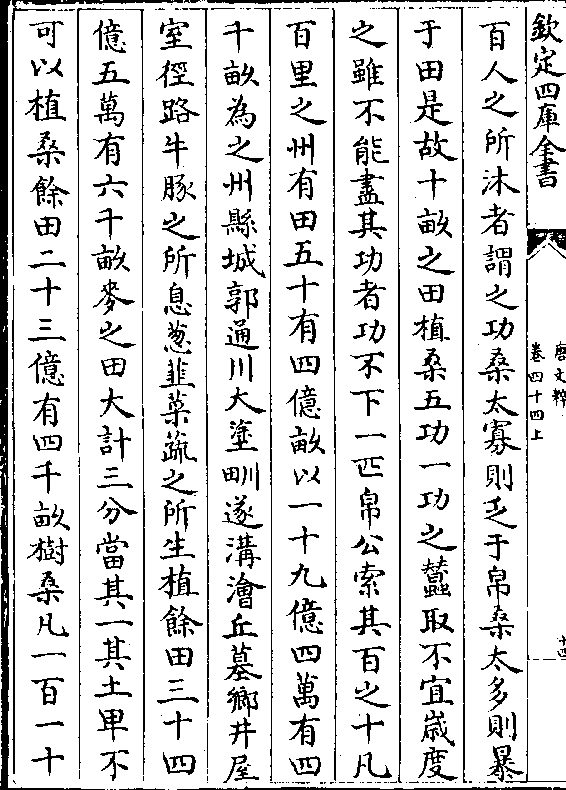 欽定四庫全書
唐文粹
卷四十四上
十四
百人之所沐者謂之功桑太寡則乏于帛桑太多則暴
于田是故十畝之田植桑五功一功之蠶取不宜歲度
之雖不能盡其功者功不下一匹帛公索其百之十凡
百里之州有田五十有四億畝以一十九億四萬有四
千畝為之州縣城郭通川大塗甽遂溝澮丘墓鄉井屋
室徑路牛豚之所息葱韮菜蔬之所生植餘田三十四
億五萬有六千畝麥之田大計三分當其一其土卑不
可以植桑餘田二十三億有四千畝樹桑凡一百一十